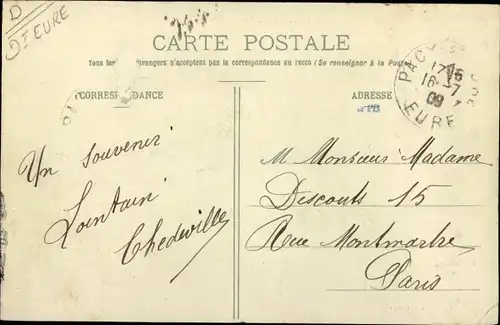 D
Dt EURE
CARTE POSTALE
Tous les étrangers n'acceptent pas la correspondance au recto (Se renseigner à la Poste)
CORRESPONDANCE
ADRESSE
PACY S EURE
17 15
16 - 7
09
EURE
Un souvenir
Lointain
Chedeville
M Monsieur Madame
Descouts 15
Rue Montmartre
Paris